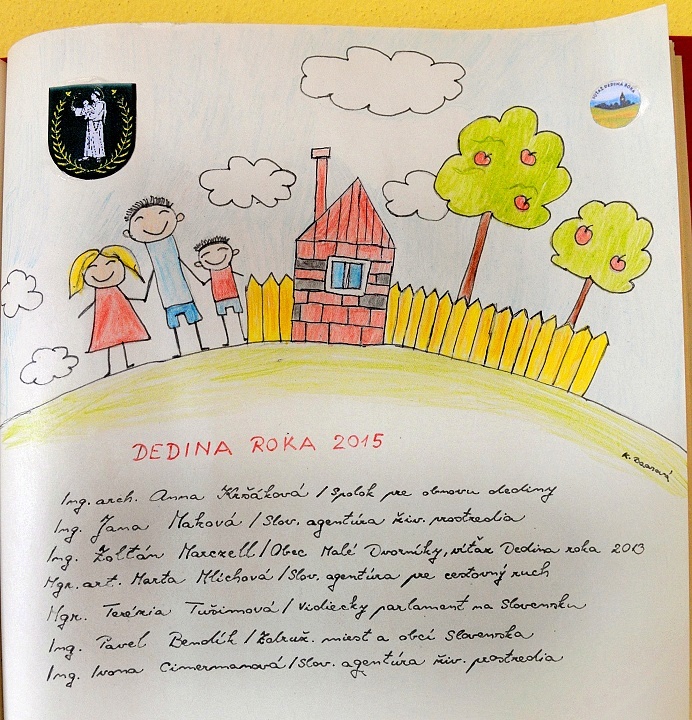 SÚŤAŽ DEDINA ROKA
DEDINA ROKA 2015
Ing. arch. Anna Kršáková / Spolok pre obnovu dediny
Ing. Jana Maková / Slov. agentúra živ. prostredia
Ing. Zoltán Marczell / Obec Malé Dvorníky, víťaz Dedina roka 2013
Mgr. art. Marta Mlichová / Slov. agentúra pre cestovný ruch
Mgr. Terézia Tušimová / Vidiecky parlament na Slovensku
Ing. Pavel Bendík / Združ. miest a obcí Slovenska
Ing. Ivona Cimermanová / Slov. agentúra živ. prostredia